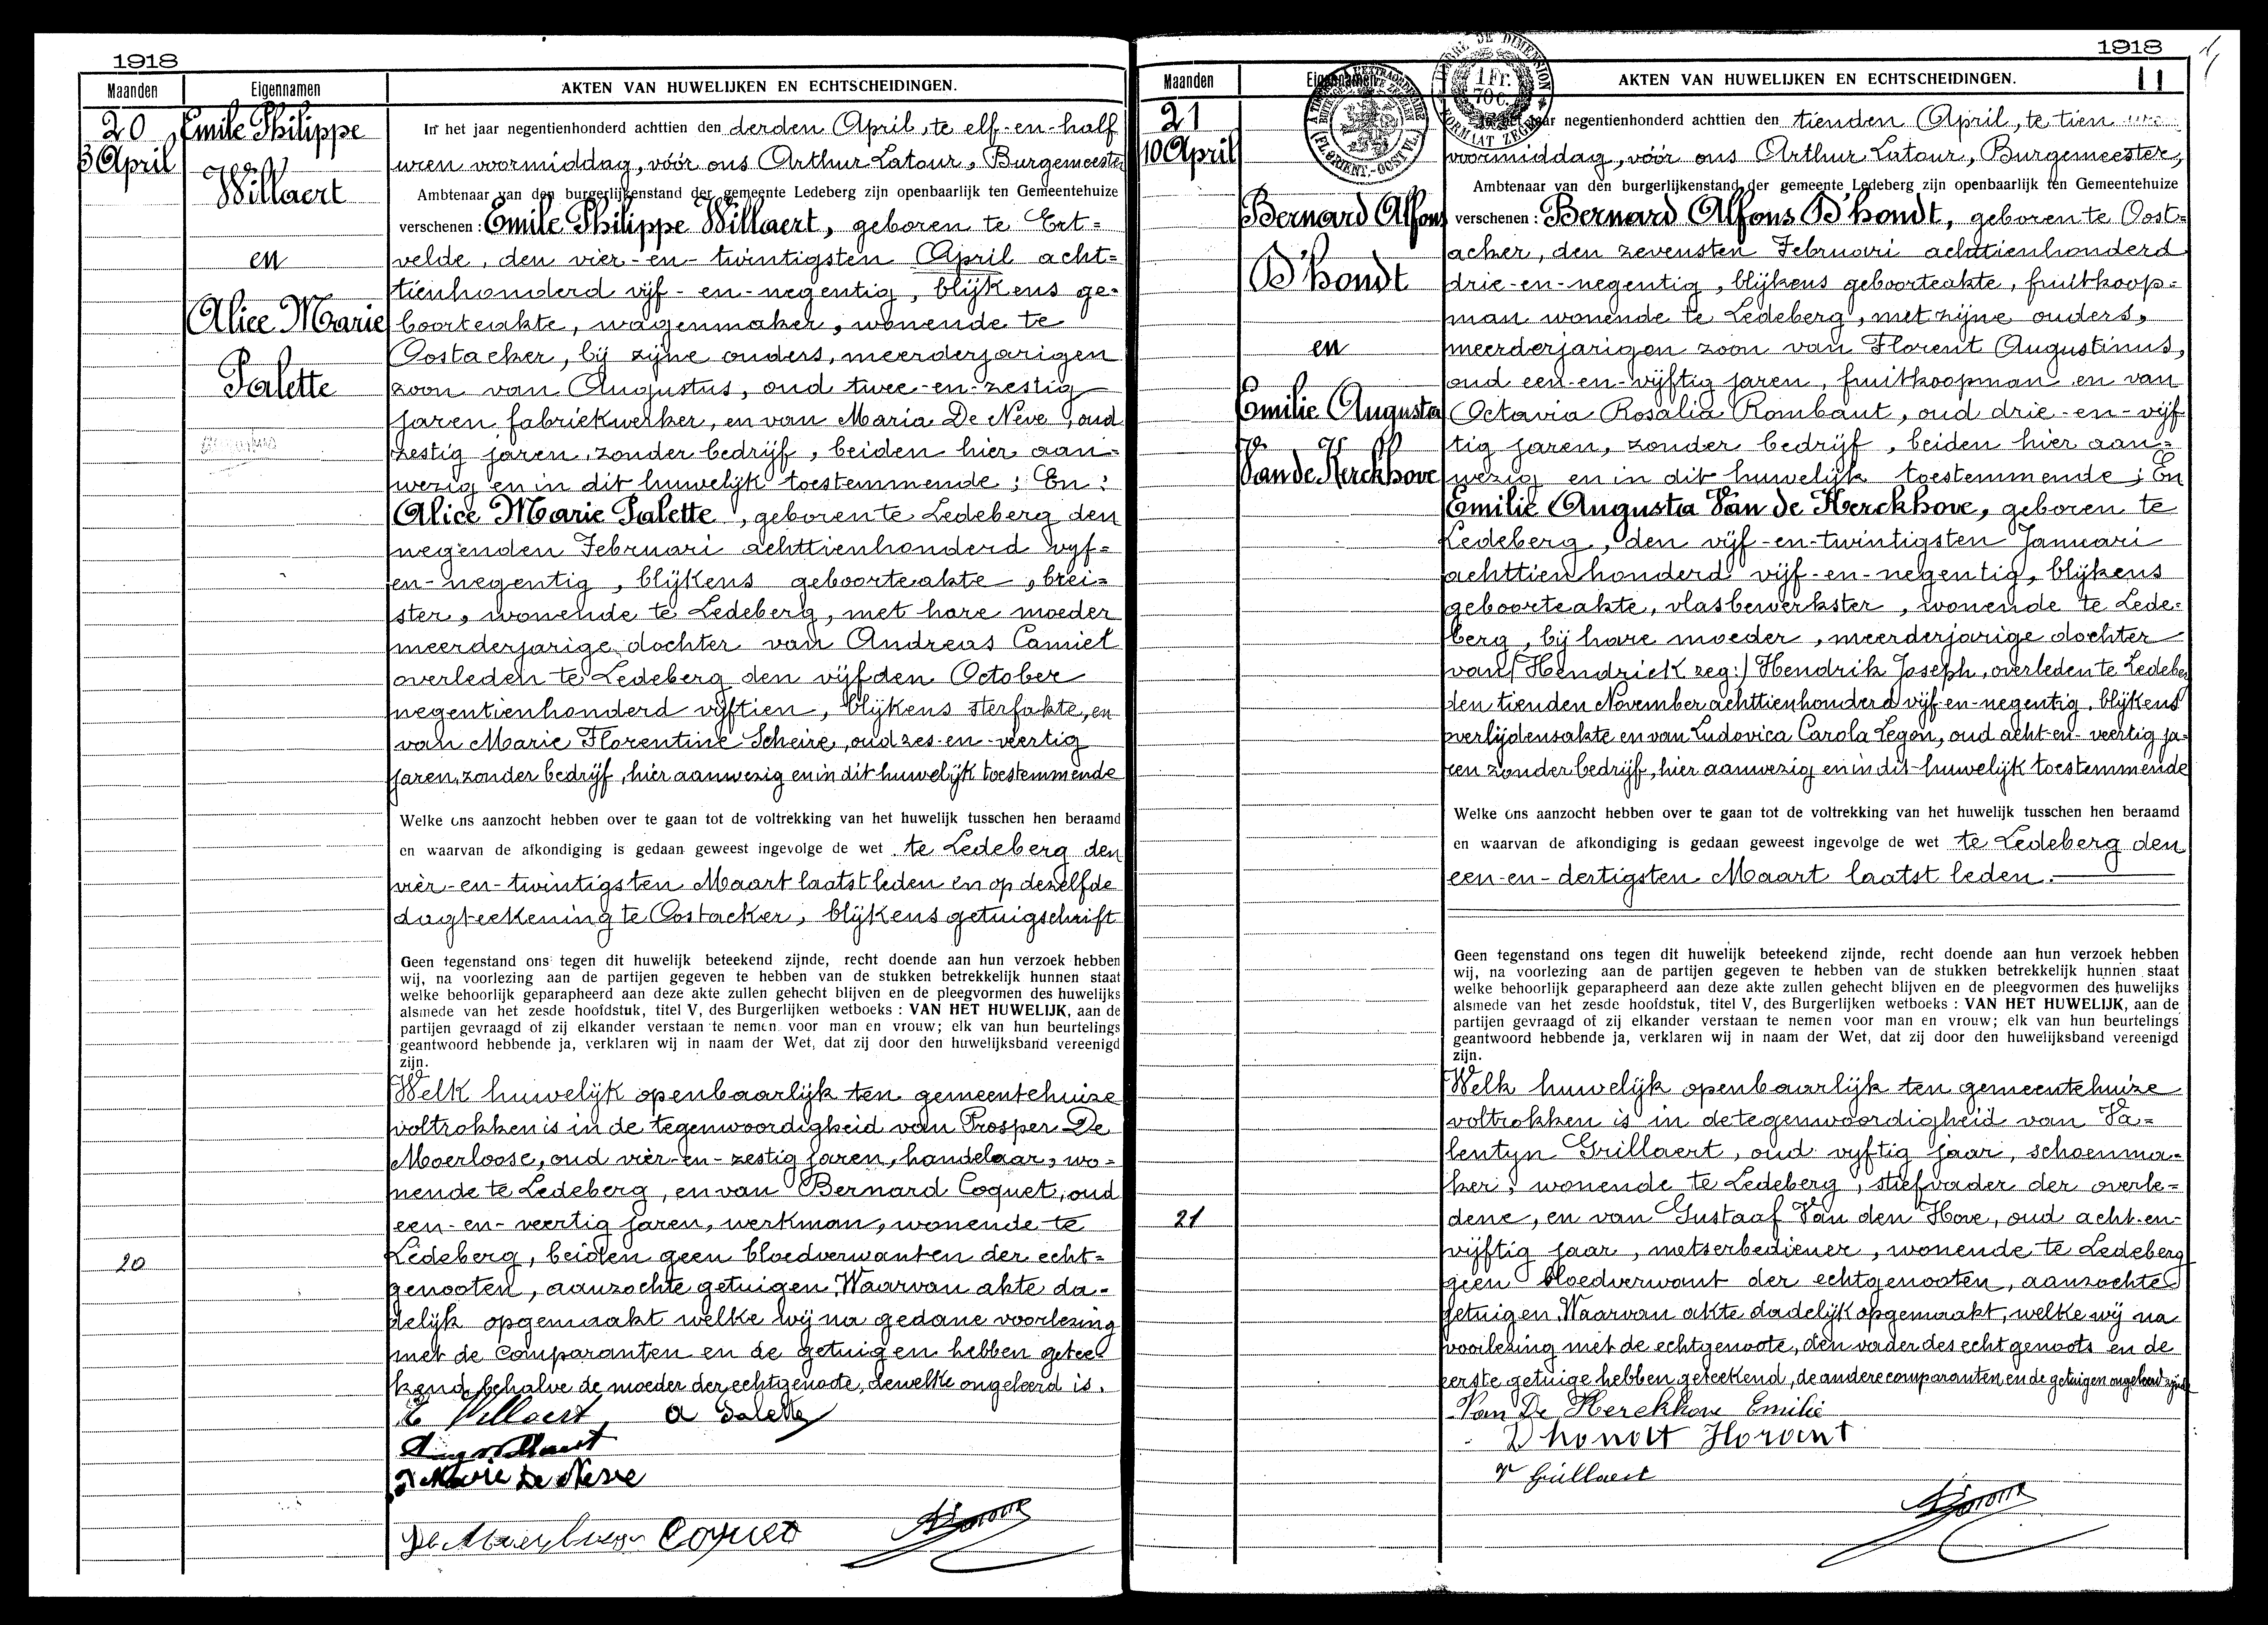 1918
Maanden
Eigennamen
AKTEN VAN HUWELIJKEN EN ECHTSCHEIDINGEN.
20
3 April
Emile Philippe
Willaert
en
Alice Marie
Palette
In het jaar negentienhonderd achttien den derden April, te elf-en-half
uren voormiddag, vóór ons Arthur Latour, Burgemeester
Ambtenaar van den burgerlijkenstand der gemeente Ledeberg zijn openbaarlijk ten Gemeentehuize
verschenen : Emile Philippe Willaert, geboren te Ert=
velde, den vier-en-twintigsten April acht=
tienhonderd vijf-en-negentig, blijkens ge=
boorteakte, wagenmaker, wonende te
Oostacker, bij zijne ouders, meerderjarigen
zoon van Augustus, oud twee-en-zestig
jaren fabriekwerker, en van Maria De Neve, oud
zestig jaren, zonder bedrijf, beiden hier aan=
wezig en in dit huwelijk toestemmende ; En :
Alice Marie Palette, geboren te Ledeberg den
negenden Februari achttienhonderd vyf=
en-negentig, blijkens geboorteakte, brei=
ster, wonende te Ledeberg, met hare moeder
meerderjarige dochter van Andreas Camiel
overleden te Ledeberg den vijfden October
negentienhonderd vijftien, blijkens sterfakte, en
van Marie Florentine Scheire, oud zes-en-veertig
jaren, zonder bedrijf, hier aanwezig en in dit huwelijk toestemmende
Welke ons aanzocht hebben over te gaan tot de voltrekking van het huwelijk tusschen hen beraamd
en waarvan de afkondiging is gedaan geweest ingevolge de wet te Ledeberg den
vier-en-twintigsten Maart laatst leden en op dezelfde
dagteekening te Oostacker, blijkens getuigschrift
Geen tegenstand ons tegen dit huwelijk beteekend zijnde, recht doende aan hun verzoek hebben
wij, na voorlezing aan de partijen gegeven te hebben van de stukken betrekkelijk hunnen staat
welke behoorlijk geparapheerd aan deze akte zullen gehecht blijven en de pleegvormen des huwelijks
alsmede van het zesde hoofdstuk, titel V, des Burgerlijken wetboeks : VAN HET HUWELIJK, aan de
partijen gevraagd of zij elkander verstaan te nemen voor man en vrouw; elk van hun beurtelings
geantwoord hebbende ja, verklaren wij in naam der Wet, dat zij door den huwelijksband vereenigd
zijn.
Welk huwelijk openbaarlijk ten gemeentehuize
voltrokken is in de tegenwoordigheid van Prosper De
Moerloose, oud vier-en-zestig jaren, handelaar, wo=
nende te Ledeberg, en van Bernard Coquet, oud
een-en-veertig jaren, werkman, wonende te
Ledeberg, beiden geen bloedverwanten der echt=
20
genooten, aanzochte getuigen. Waarvan akte da=
delijk opgemaakt welke wij na gedane voorlezing
met de comparanten en de getuigen hebben getee=
kend, behalve de moeder der echtgenoote, dewelke ongeleerd is.
E Willaert, A Palette
Aug Willaert
Marie De Neve
Coquet
1918
11
Maanden
Eigennamen
AKTEN VAN HUWELIJKEN EN ECHTSCHEIDINGEN.
(FLORIENT.-OOST VL.)
TIMBRE DE DIMENSION
1 Fr.
70 c.
FORMAAT ZEGEL
21
10 April
Bernard Alfons
D'hondt
en
Emilie Augusta
Van de Kerckhove
In het jaar negentienhonderd achttien den tienden April, te tien uren
voormiddag, vóór ons Arthur Latour, Burgemeester,
Ambtenaar van den burgerlijkenstand der gemeente Ledeberg zijn openbaarlijk ten Gemeentehuize
verschenen : Bernard Alfons D'hondt, geboren te Oost=
acker, den zevensten Februari achttienhonderd
drie-en-negentig, blijkens geboorteakte, fruitkoop=
man wonende te Ledeberg, met zijne ouders,
meerderjarigen zoon van Florent Augustinus,
oud een-en-vijftig jaren, fruitkoopman en van
Octavia Rosalia Rombaut, oud drie-en-vijf
tig jaren, zonder bedrijf, beiden hier aan=
wezig en in dit huwelijk toestemmende ; En
Emilie Augusta Van de Kerckhove, geboren te
Ledeberg, den vijf-en-twintigsten Januari
achttienhonderd vijf-en-negentig, blijkens
geboorteakte, vlasbewerkster, wonende te Lede=
berg, bij hare moeder, meerderjarige dochter
van (Hendrick zeg:) Hendrik Joseph, overleden te Ledeberg
den tienden November achttienhonderd vijf-en-negentig, blijkens
overlijdensakte en van Ludovica Carola Legon, oud acht-en-veertig ja=
ren zonder bedrijf, hier aanwezig en in dit huwelijk toestemmende
Welke ons aanzocht hebben over te gaan tot de voltrekking van het huwelijk tusschen hen beraamd
en waarvan de afkondiging is gedaan geweest ingevolge de wet te Ledeberg den
een-en-dertigsten Maart laatst leden.
Geen tegenstand ons tegen dit huwelijk beteekend zijnde, recht doende aan hun verzoek hebben
wij, na voorlezing aan de partijen gegeven te hebben van de stukken betrekkelijk hunnen staat
welke behoorlijk geparapheerd aan deze akte zullen gehecht blijven en de pleegvormen des huwelijks
alsmede van het zesde hoofdstuk, titel V, des Burgerlijken wetboeks : VAN HET HUWELIJK, aan de
partijen gevraagd of zij elkander verstaan te nemen voor man en vrouw; elk van hun beurtelings
geantwoord hebbende ja, verklaren wij in naam der Wet, dat zij door den huwelijksband vereenigd
zijn.
Welk huwelijk openbaarlijk ten gemeentehuize
voltrokken is in de tegenwoordigheid van Va=
lentyn Grillaert, oud vyftig jaar, schoenma=
ker, wonende te Ledeberg, stiefvader der overle=
21
dene, en van Gustaaf Van den Hove, oud acht-en-
vijftig jaar, metserbediener, wonende te Ledeberg
geen bloedverwant der echtgenooten, aanzochte
getuigen. Waarvan akte dadelijk opgemaakt, welke wij na
voorlezing met de echtgenoote, den vader des echtgenoots en de
eerste getuige hebben geteekend, de andere comparanten en de getuigen ongeleerd zijnde
Van De Kerckhove Emilie
Dhondt Florent
V Grillaert